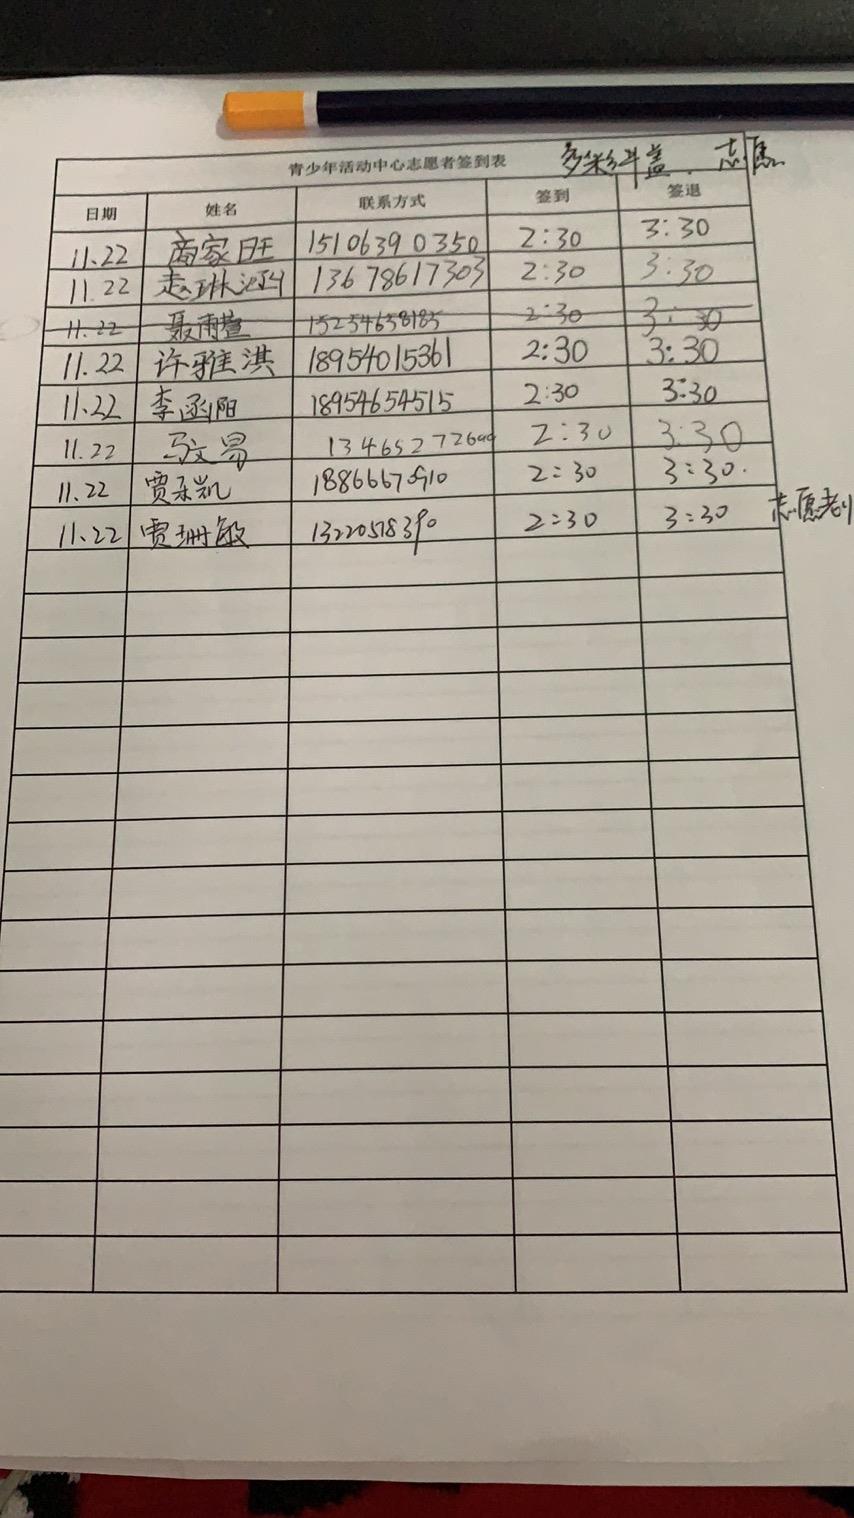 青少年活动中心志愿者签到表 多彩斗盖、志愿
日期 姓名 联系方式 签到 签退
11.22 商家旺 15106390350 2:30 3:30
11.22 赵琳涵 13678617303 2:30 3:30
11.22 聂雨萱 15254658185 2:30 3:30
11.22 许雅淇 18954015361 2:30 3:30
11.22 李函阳 18954654515 2:30 3:30
11.22 2:30 3:30
11.22 2:30 3:30.
11.22 贾珊敏 13220518390 2:30 3:30 志愿者